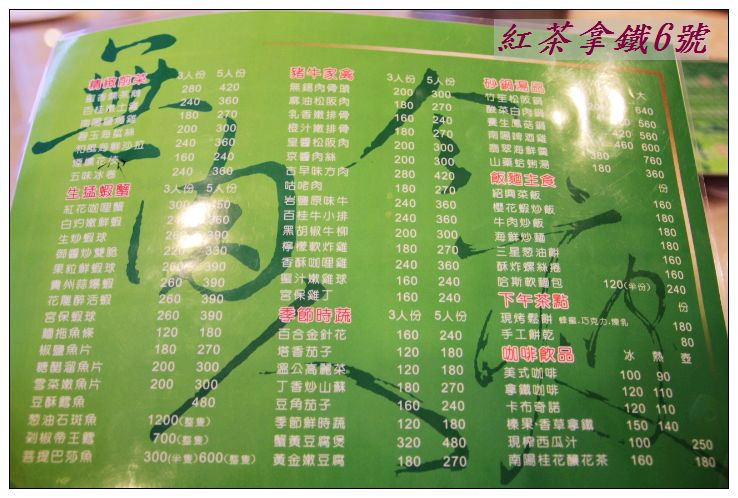 紅茶拿鐵6號
精緻前菜 3人份 5人份
280 420
240 360
180 270
200 300
五味冰卷 240 360
生猛蝦蟹 3人份 5人份
紅花咖哩蟹 300 450
白灼嫩鮮蝦 360
生炒蝦球 260 390
御醬炒雙脆 220 330
果粒鮮蝦球 260 390
貴州蒜爆蝦 260 390
花雕醉活蝦 260 390
宮保蝦球 260 390
麵拖魚條 120 180
椒鹽魚片 180 270
糖醋溜魚片 200 300
雪菜嫩魚片 200 300
豆酥鱈魚 480
葱油石斑魚 1200(整隻)
剁椒帝王鱈 700(整隻)
菩提巴莎魚 300(半隻)600(整隻)
豬牛家禽 3人份 5人份
無錫肉骨頭 240 360
麻油松阪肉 200 300
乳香嫩排骨 180 270
橙汁嫩排骨 180 270
皇醬松阪肉 200 300
京醬肉絲 200 300
古早味方肉 280 420
咕咾肉 160 240
岩鹽原味牛 240 360
百桂牛小排 240 360
黑胡椒牛柳 200 300
檸檬軟炸雞 180 270
香酥咖哩雞 240 360
蜜汁嫩雞球 180 270
宮保雞丁 160 240
季節時蔬 3人份 5人份
百合金針花 160 240
塔香茄子 120 180
溫公高麗菜 120 180
丁香炒山蘇 120 180
豆角茄子 160 240
季節鮮時蔬 120 180
蟹黃豆腐煲 320 480
黃金嫩豆腐 120 180
砂鍋湯品 大
竹笙松阪鍋 640
酸菜白肉鍋 560
養生鳳菇鍋 420 560
南陽啤酒雞 460 600
翡翠海鮮羹 380 760
山藥蛤蜊湯 380 560
飯麵主食 份
紹興菜飯 160
櫻花蝦炒飯 160
牛肉炒飯 160
海鮮炒麵 180
三星葱油餅 180
酥炸螺絲捲 160
哈斯軟麵包 120(半份) 240
下午茶點 份
現烤鬆餅 蜂蜜.巧克力.煉乳 180
手工餅乾 80
咖啡飲品 冰 熱 壺
美式咖啡 100 90
拿鐵咖啡 120 110
卡布奇諾 120 110
榛果·香草拿鐵 150 140
現榨西瓜汁 100 250
南陽桂花釀花茶 160 180